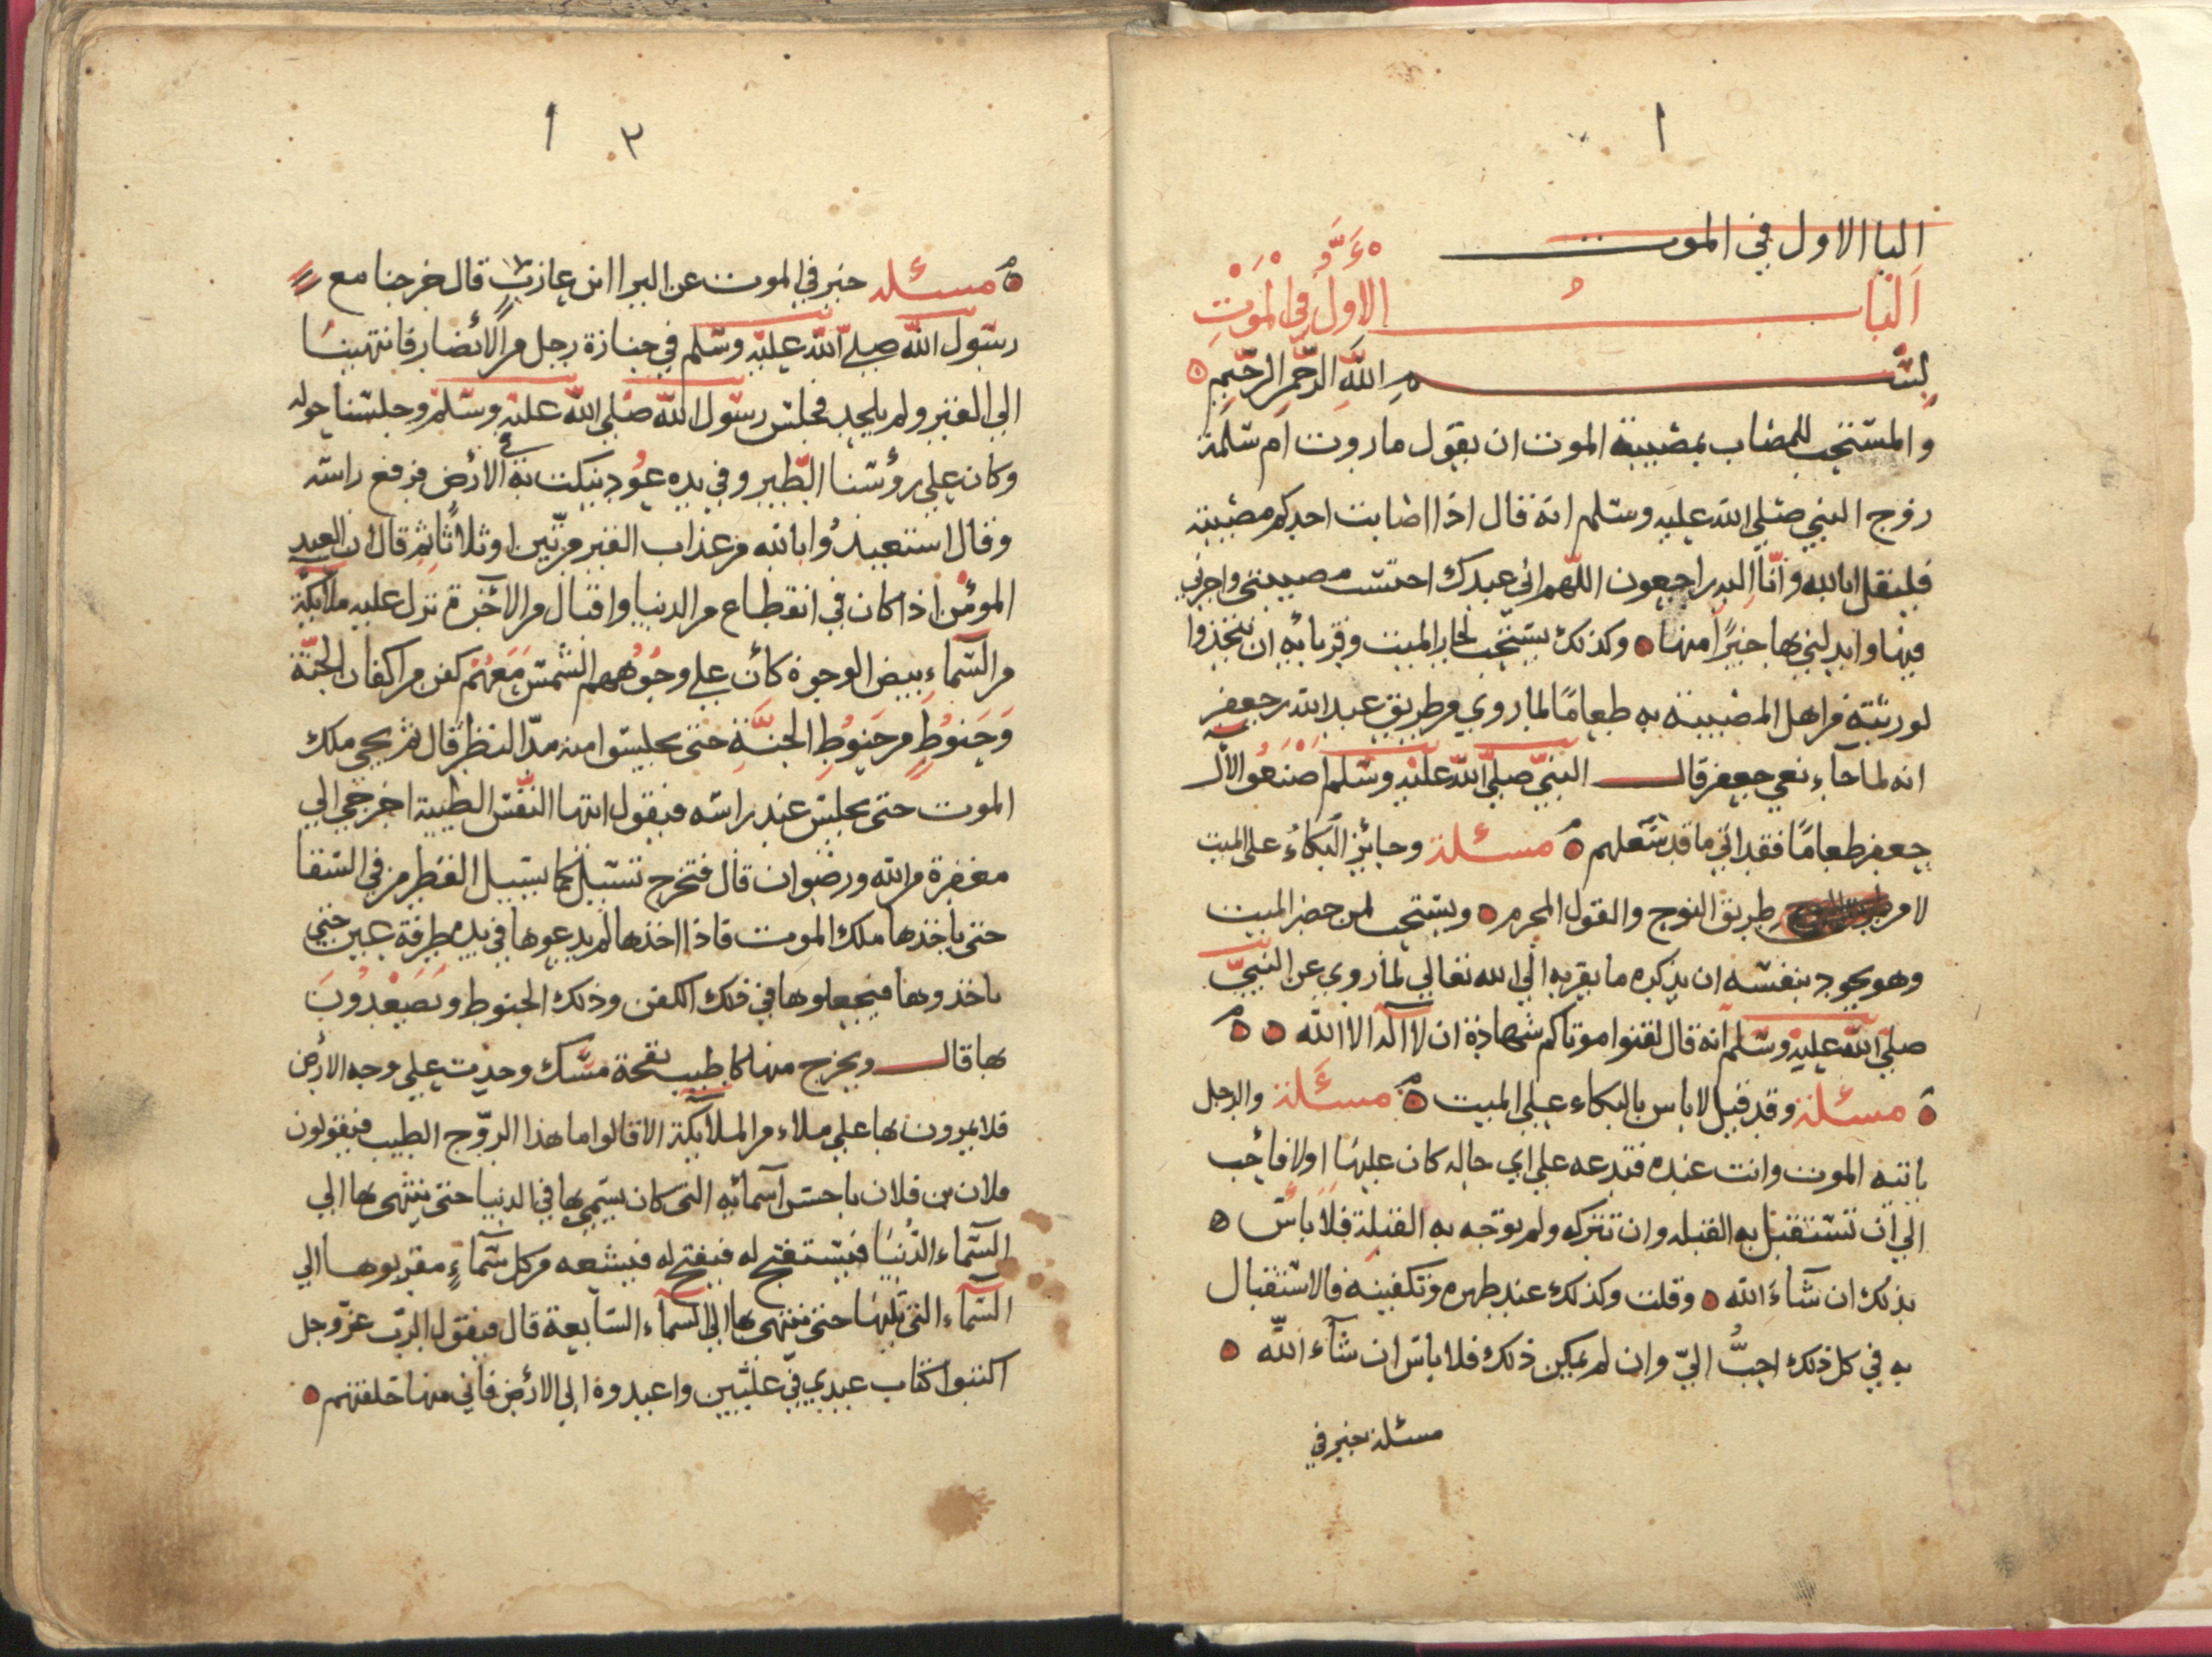 ١
البا الاول في الموت
اَلْبَابُ الاَوَّلُ فِي الْمَوْتِ
بِسْمِ اللهِ الرَّحْمنِ الرَّحِيْمِ
والمستحب للمصاب بمصيبة الموت ان يقول ما روت ام سَلَمة
زوج النبي صَلي الله عليه وسلم انه قال اذا اصابت احدكم مصيبة
فليقل انا لله وانّا اليه راجعون اللّهم اني عبدك احتسب مصيبتي واجرني
فيها وابدلني بها خيرًا منها وكذلك يستحب لجار الميت وقربائه ان يتخذوا
لورثته من اهل المصيبة به طعامًا لما روي من طريق عبد الله بن جعفر
انه لما جآء نعي جعفر قال النبيّ صلّي الله عليه وسلم اصْنَعُو الآل
جعفر طعامًا فقد اتي ما قد شَغلهم مسئلة وجائز البكاءُ على الميت
لا من طريق النوح والقول المحرم ويستحب لمن حضر الميت
وهو يجود بنفسه ان يذكره ما يقربه الي الله تعالي لما روي عن النبيّ
صلّي الله عليه وسلم انه قال لقنوا موتاكم شهادة ان لا آله الا الله
مسئلة وقد قيل لا باس بالبكاء علي الميت مسئلة والرجل
ياتيه الموت وانت عنده فتدعه علي اي حاله كان عليها اولا فاُحب
الي ان تستقبل به القبله وان تتركه ولم يوجه به القبلة فلا باس
بذلك ان شآءَ الله وقلت وكذلك عند طهره وتكفينه فالاستقبال
به في كل ذلك احبُّ اليّ وان لم يمكن ذلك فلا باس ان شآء الله
مسئله خبر في
٢ ١
مسئله خبر في الموت عن البرا ابن عازب قال خرجنا مع
رسَول الله صلي الله عليه وسلم في جنازة رجل من الانصار فانتهينا
الي القبر ولم يلحد فجلس رسول الله صَلي الله عليه وسلم وجلسنا حوله
وكان علي رؤسنا الطير وفي يده عود ينكت به في الارض فرفع راسه
وقال استعيذُوا بالله من عذاب القبر مرّتين او ثلاثًا ثم قال ان العبد
المؤمن اذا كان في انقطاع من الدنيا واقبال من الآخرة نزل عليه ملآئكة
من السَّماءِ بيض الوجوة كأن علي وجُوُههم الشمس مَعَهُمْ كفن من اكفان الجنّة
وَحَنوُطٍ من حَنوُطِ الجنَّةِ حتى يجلسَوا منه مدّ النظر قال ثم يجي ملك
الموت حتى يجلس عند راسه فيقول ايتها النَّفس الطيبة اخرجي الي
مغفرة من الله ورضوان قال فتخرج تسيل كما يسيل القطر من في السقا
حتى ياخذها ملك الموت فاذا اخذها لم يدعوها في يده طرفة عين حتي
ياخذوها فيجعلوها في ذلك الكفن وذلك الحنوط ويَصْعَدُونَ
بها قال ويخرج منها كاطيب نفحة مسّك وجدت علي وجه الارض
فلا يمرون بها علي ملاء من الملآئكة الا قالوا ما هذا الروّح الطيب فيقولون
فلان بن فلان باحسن اسمائه التي كان يسمّي بها في الدنيا حتى ينتهي بها الي
السَّماء الدُّنيَا فيستفتح له فيفتح له فيشعه من كل سَماءٍ مقربوها الي
السَّماء التي تليها حتى ينتهي بها الي السماء السَّابعة قال فيقول الربّ عزّ وجل
اكتبوا كتاب عبدي في علّيين واعيدوه الي الارض فاني منها خلقتهم